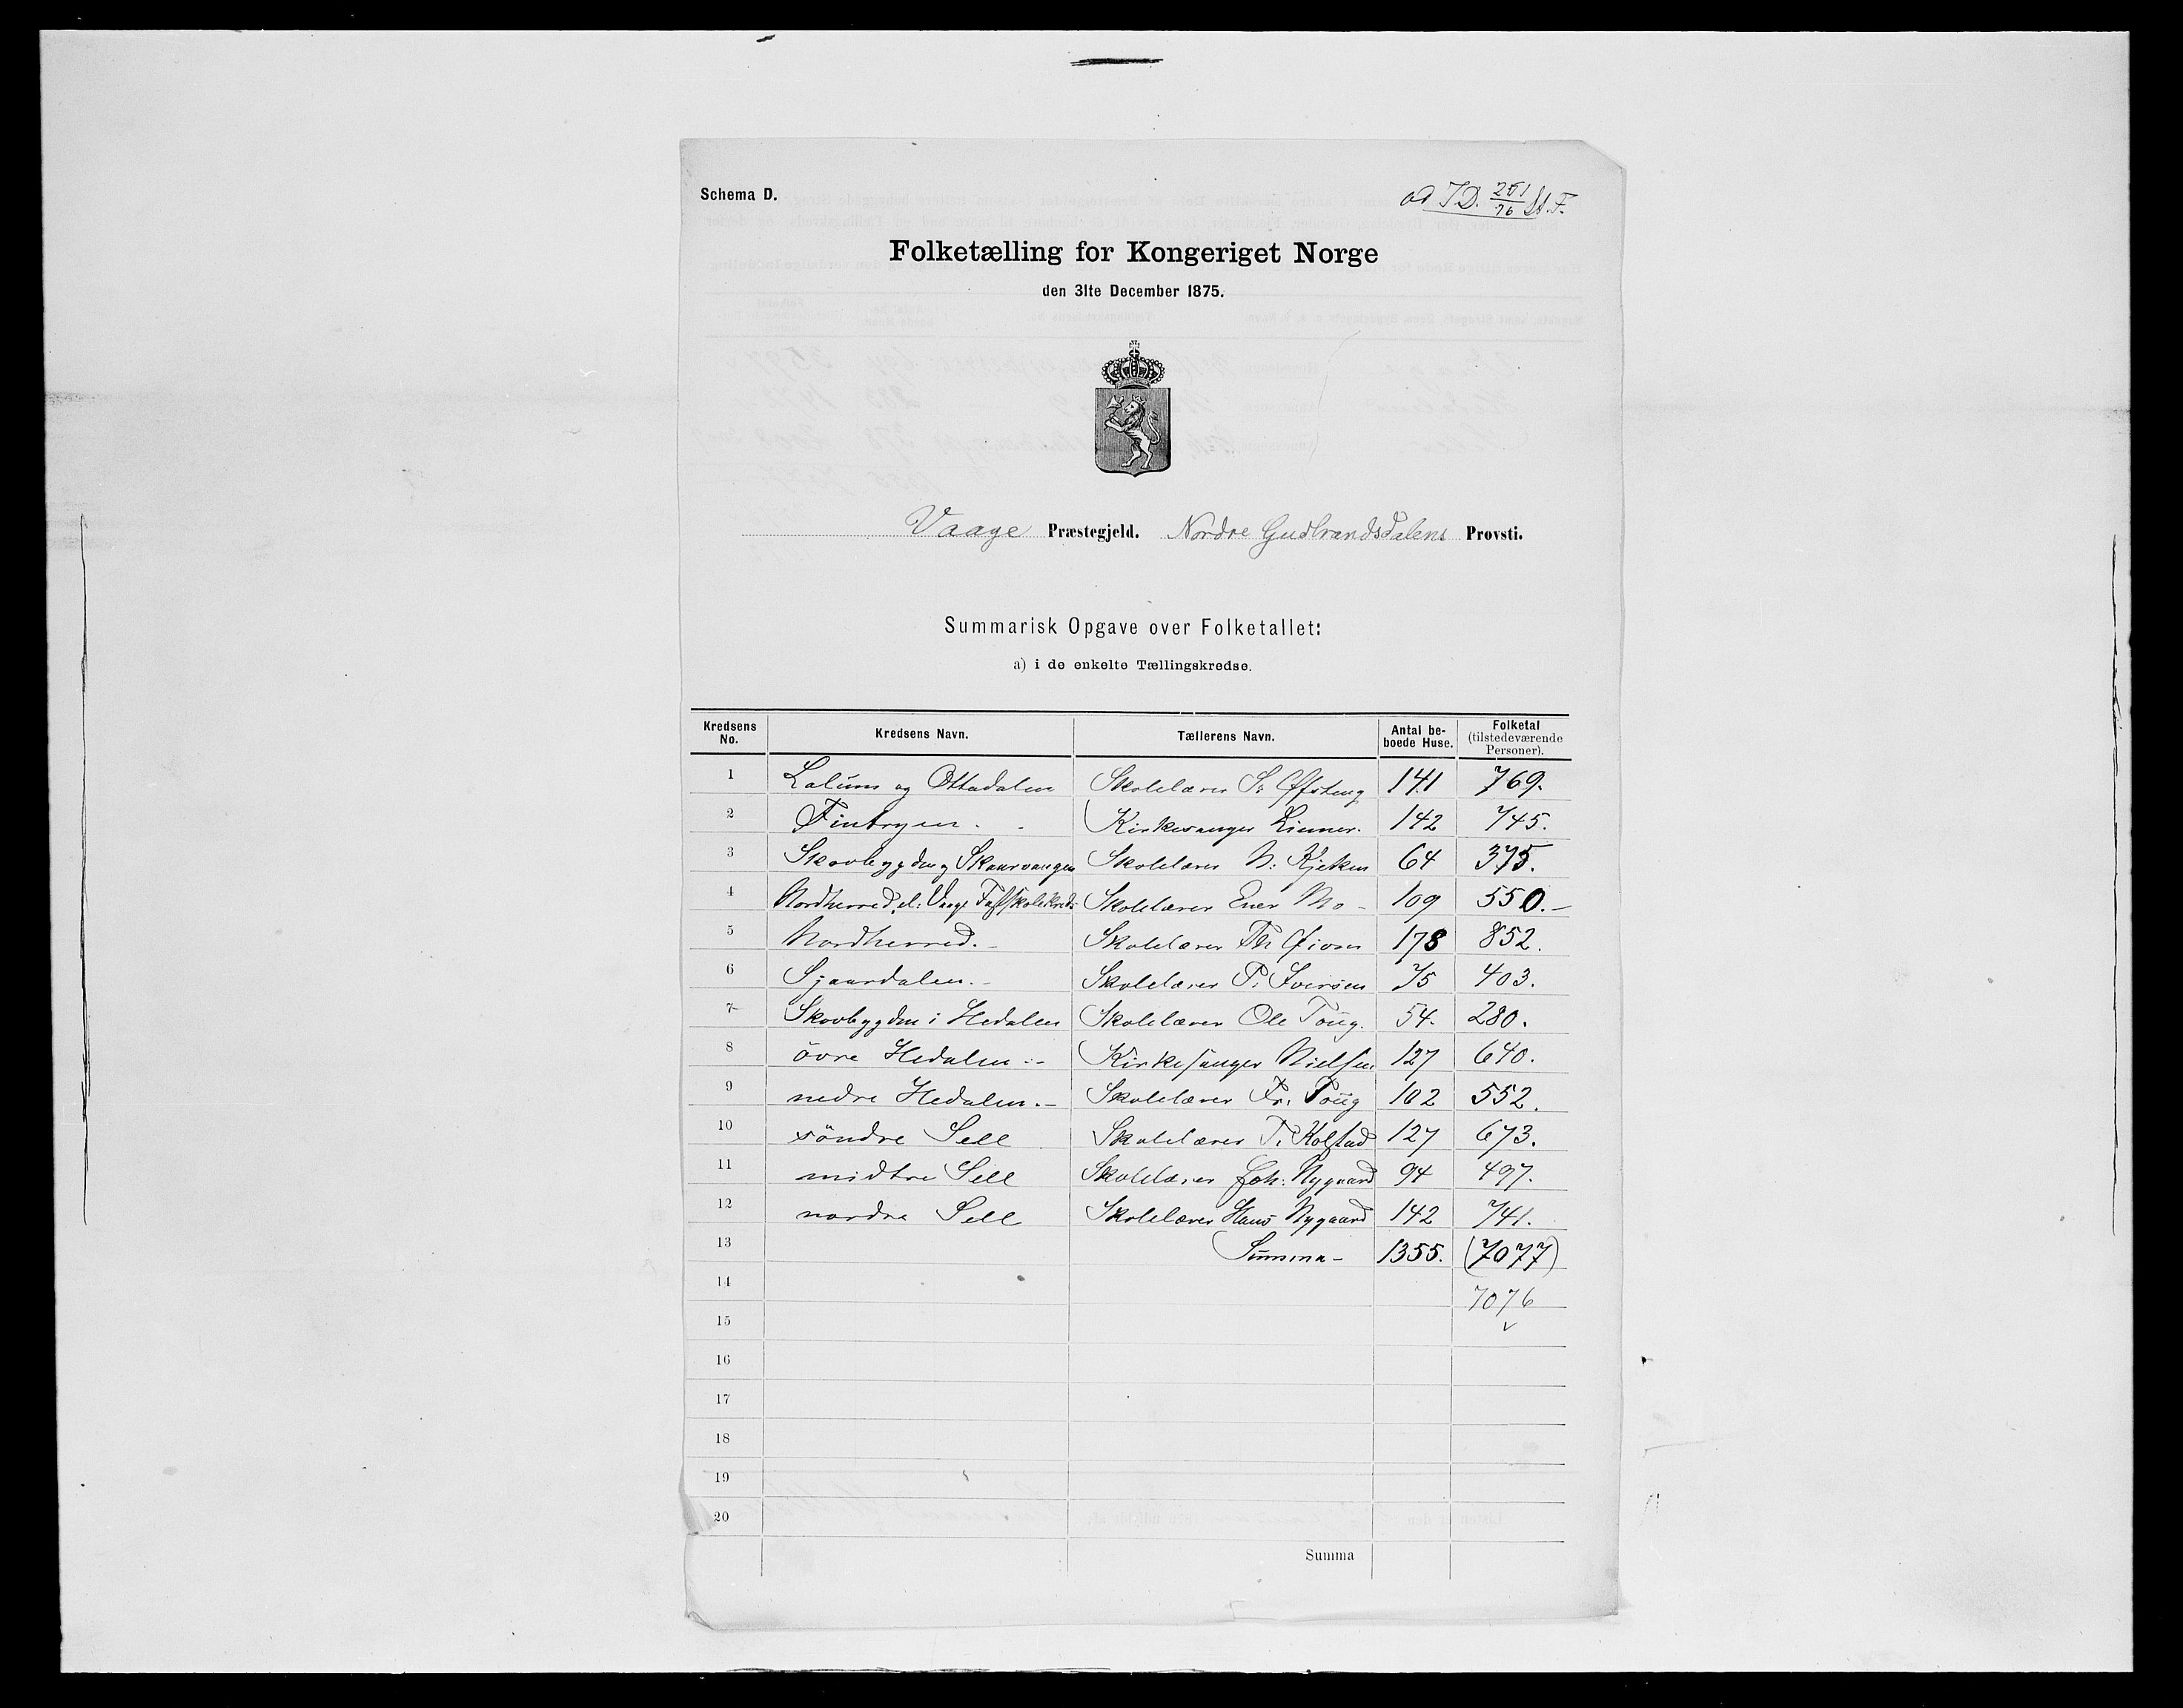 Schema D.
ad J.D. 251/76 St. F.
Folketælling for Kongeriget Norge
den 31te December 1875.
Vaage Præstegjeld. Nordre Gudbrandsdalens Provsti.
Summarisk Opgave over Folketallet:
a) i de enkelte Tællingskredse.
Kredsens No. Kredsens Navn. Tællerens Navn. Antal beboede Huse. Folketal (tilstedeværende Personer).
1 Lalüm og Ottadalen Skolelærer S. Øfsteng 141 769.
2 Kirkesanger 142 745.
3 Skovbygden og Skaarvangen Skolelærer N: 64 375.
4 Nordherred, el: Vaage Fastskolekreds Skolelærer Ener Mo - 109 550.-
5 Nordherred.- Skolelærer Th 178 852.
6 Sjaardalen.- Skolelærer P. Iversen 75 403.
7 Skovbygden i Hedalen Skolelærer Ole Toüg. 54. 280.
8 övre Hedalen.- Kirkesanger Nielsen 127 640.
9 nedre Hedalen.- Skolelærer Fr. Toüg 102 552.
10 söndre Sell Skolelærer T. Kolstad 127 673.
11 midtre Sell Skolelærer Joh: Nygaard 94 497.
12 nordre Sell Skolelærer Hans Nygaard 142 741.
13 Sümma- 1355. (7077)
14 7076
15
16
17
18
19
20
Summa